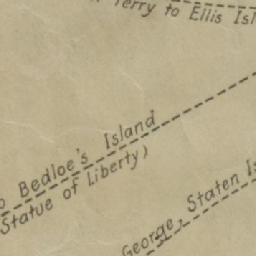 Ferry to Ellis Isl
o Bedloe's Island
Statue of Liberty)
George, Staten Is